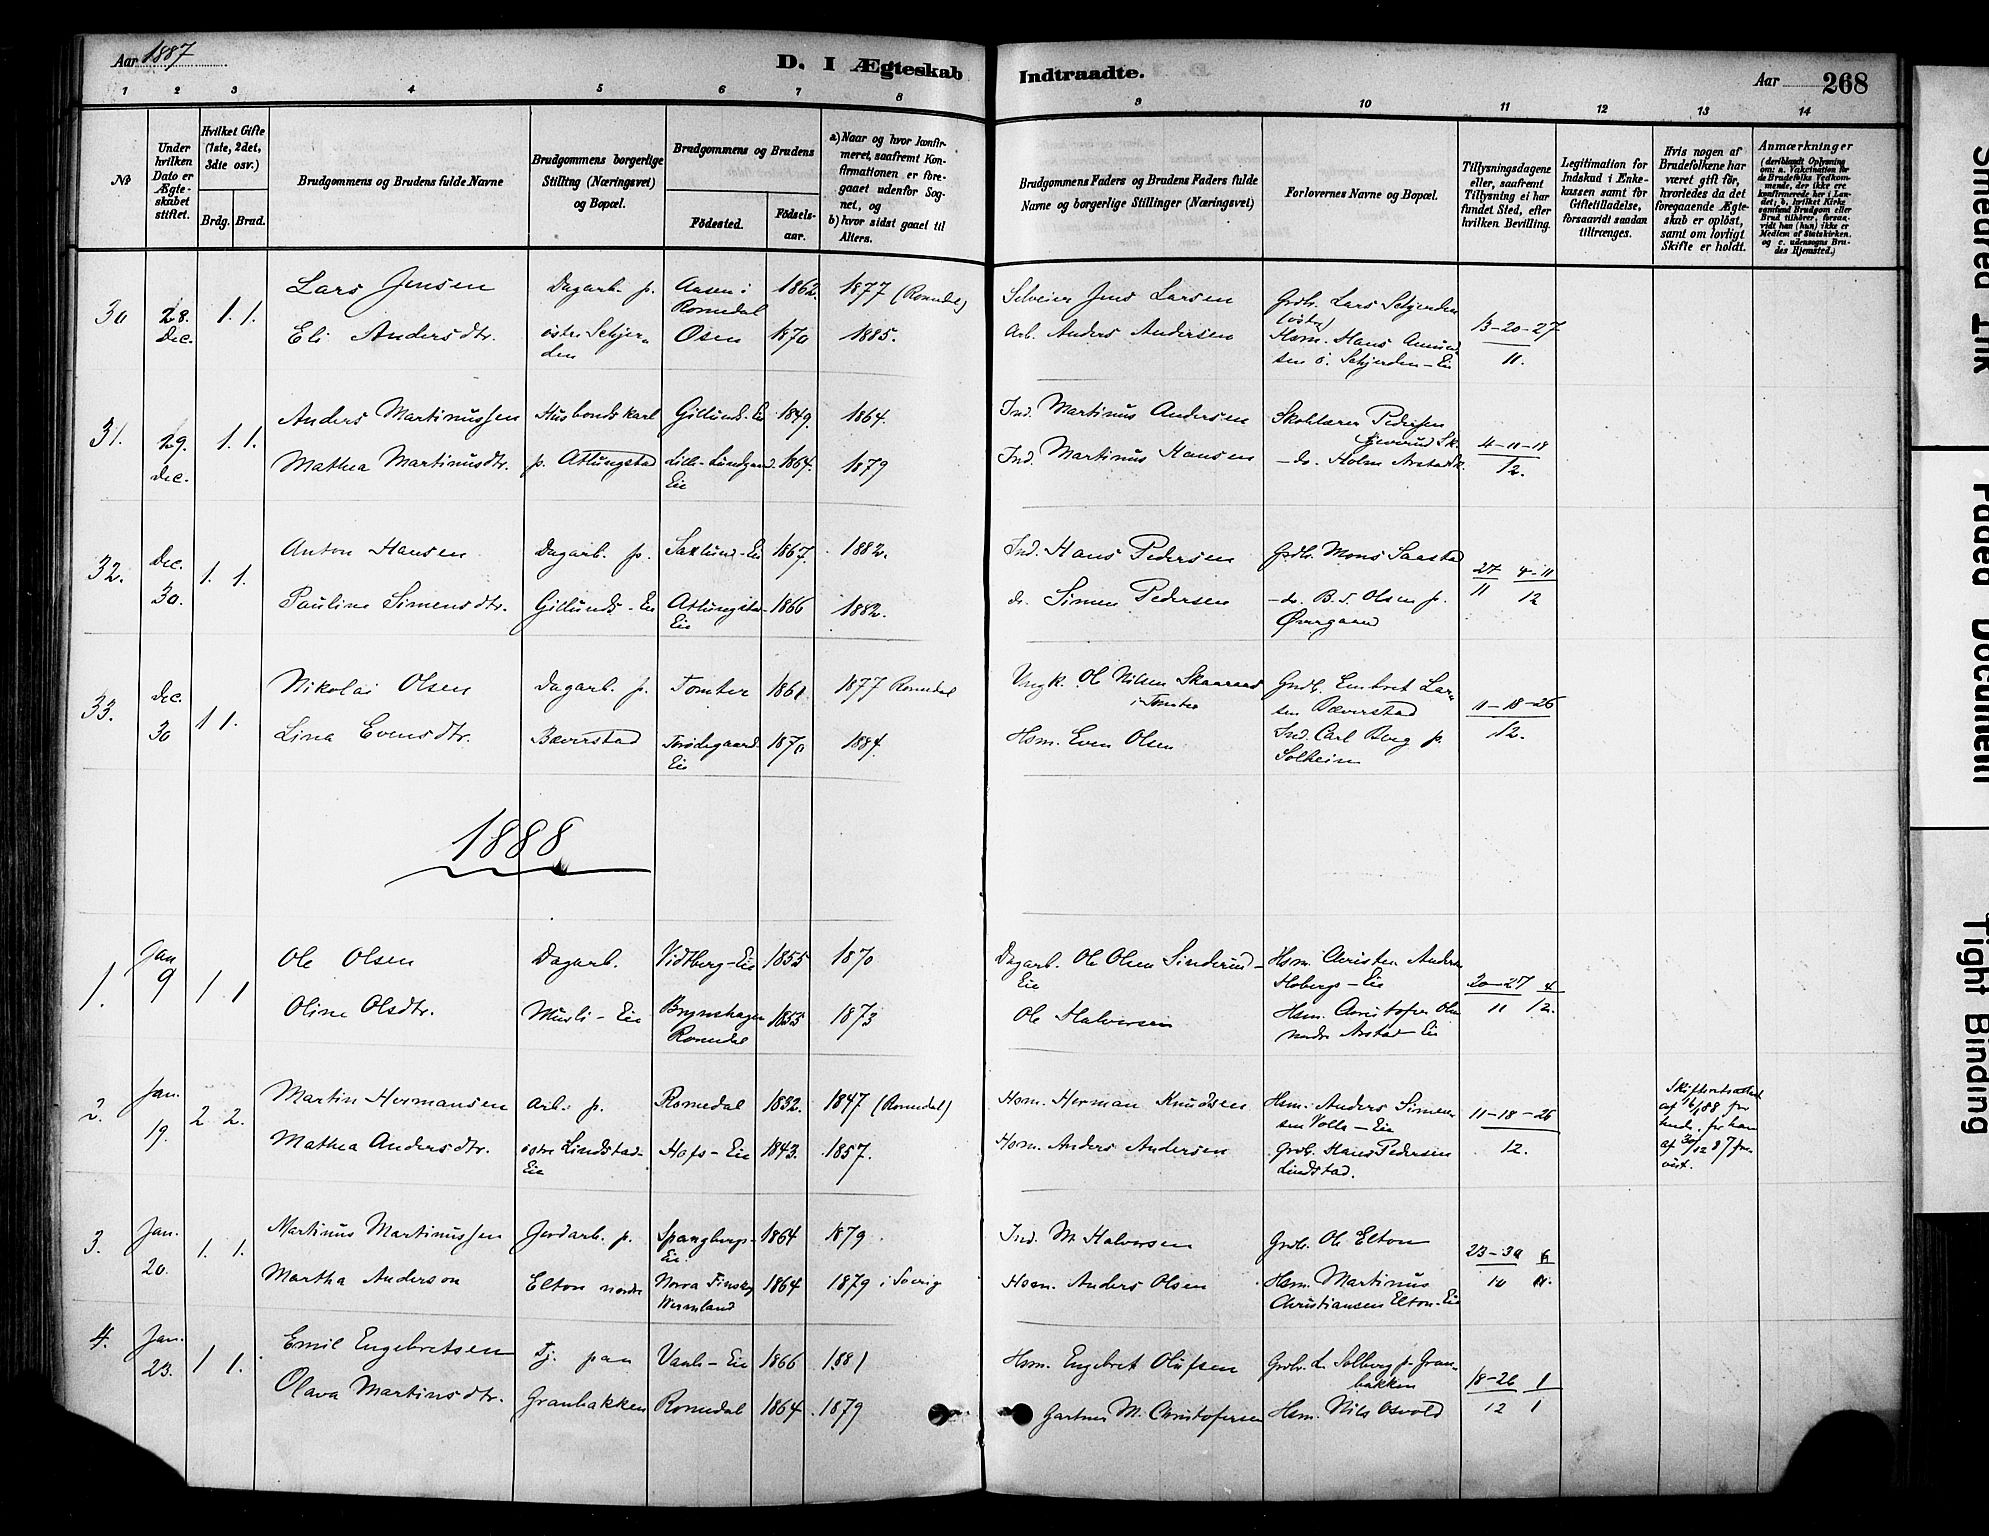 Aar 1887
D. I Ægteskab
Indtraadte.
Aar 268
1 2 3 4 5 6 7 8 9 10 11 12 13 14
No
Under hvilken Dato er Ægteskabet stiftet.
Hvilket Gifte (1ste, 2det, 3die osv.)
Brdg. Brud.
Brudgommens og Brudens fulde Navne
Brudgommens borgerlige Stilling (Næringsvei) og Bopæl.
Brudgommens og Brudens
Födested.
Födselsaar.
a) Naar og hvor konfirmeret, saafremt Konfirmationen er foregaaet udenfor Sognet, og
b) hvor sidst gaaet til Alters.
Brudgommens Faders og Brudens Faders fulde Navne og borgerlige Stillinger (Næringsvei)
Forlovernes Navne og Bopæl.
Tillysningsdagene eller, saafremt Tillysning ei har fundet Sted, efter hvilken Bevilling.
Legitimation for Indskud i Enkekassen samt for Giftetilladelse, forsaavidt saadan tiltrænges.
Hvis nogen af Brudefolkene har været gift för, hvorledes da det foregaaende Ægteskab er oplöst, samt om lovligt Skifte er holdt.
Anmærkninger
(deriblandt Oplysning om: a. Vakcination for de Brudefolks Vedkommende, der ikke ere konfirmerede her i Landet; b. hvilket Kirkesamfund Brudgom eller Brud tilhörer, forsaavidt han (hun) ikke er Medlem af Statskirken. og c. udensogns Brudes Hjemsted.)
30 28. Dec. 1. 1.
Lars Jensen Dagarb. p. Aasen i Romedal 1862. 1877 (Romedal) Selveier Jens Larsen Grdb. Lars Schjerden (östre) 13-20-27
Eli Andersdtr. östre Schjerden Osen 1870 1885. Arb. Anders Andersen Hsm. Hans Amundsen ö. Schjerden-Eie 11.
31. 29. Dec. 1. 1.
Anders Martinussen Husbondskarl Gillunds-Eie 1849. 1864. Ind. Martinus Andersen Skolelærer Pedersen 4-11-18
Mathea Martinusdtr. p. Atlungstad Lille-Lundgaard Eie 1864. 1879 Ind. Martinus Hansen -do. Holm 12.
32. Dec. 30. 1. 1.
Anton Hansen Dagarb. p. Saxlund-Eie 1867. 1882. Ind. Hans Pedersen Grdb. Mons Saastad 27 4-11
Pauline Simensdtr. Gillunds-Eie Atlungstad Eie 1866 1882. do. Simen Pedersen -do. B. S. Olsen p. Övergaard 11 12
33. Dec. 30 1 1.
Nikolai Olsen Dagarb. p. Tomter 1861. 1877 Romedal Ungk. Ole Nilsen Skaarand i Tomter Grdb. Embret Larsen Bæverstad 11-18-26
Lina Evensdtr. Bæverstad Eie 1870 1884. Hsm. Even Olsen Ind. Carl Berg p. Solheim 12.
1888
1. Jan 9 1 1
Ole Olsen Dagarb. Vidtberg-Eie 1855 1870 Dagarb. Ole Olsen Sinderud-Eie Hsm. Christen Andersen Hobergs-Eie 20-27 4
Oline Olsdtr. Musli-Eie Brynshagen Romedal 1855 1873 Ole Halvorsen Hsm. Christofer Olsen nordre Arstad-Eie 11 12.
2. Jan. 19. 2 2.
Martin Hermansen Arb. p. Romedal 1832. 1847 (Romedal) Hsm. Herman Knudsen Hsm. Anders Simensen Volls-Eie 11-18-26 Skifteretsattest af 16/1 88 for hende, for ham af 30/12 87 fore vist.
Mathea Andersdtr. östre Lindstad-Eie Hofs-Eie 1843. 1857. Hsm. Anders Andersen Grdb. Hans Pedersen Lindstad. 12.
3. Jan. 20. 1. 1.
Martinus Martinussen Jordarb. p. Spangbergs-Eie 1864 1879. Ind. M. Halvorsen Grdb. Ole Elton 23-30 6
Martha Anderson Elton nordre Norra Finskog Wermland 1864 1879 i Sverig Hsm. Anders Olsen Hsm. Martinus Christiansen Elton-Eie 10 11.
4. Jan. 23. 1 1.
Emil Engebretsen Tj. paa Vauls-Eie 1866 1881 Hsm. Engebret Olufsen Grdb. L. Solberg p. Granbakken 18-26 1
Olava Martinsdtr. Granbakken Romedal 1864. 1879 Gartner M. Christofersen Hsm. Nils Osvold 12 1
Smeared Ink
Faded Document
Tight Binding